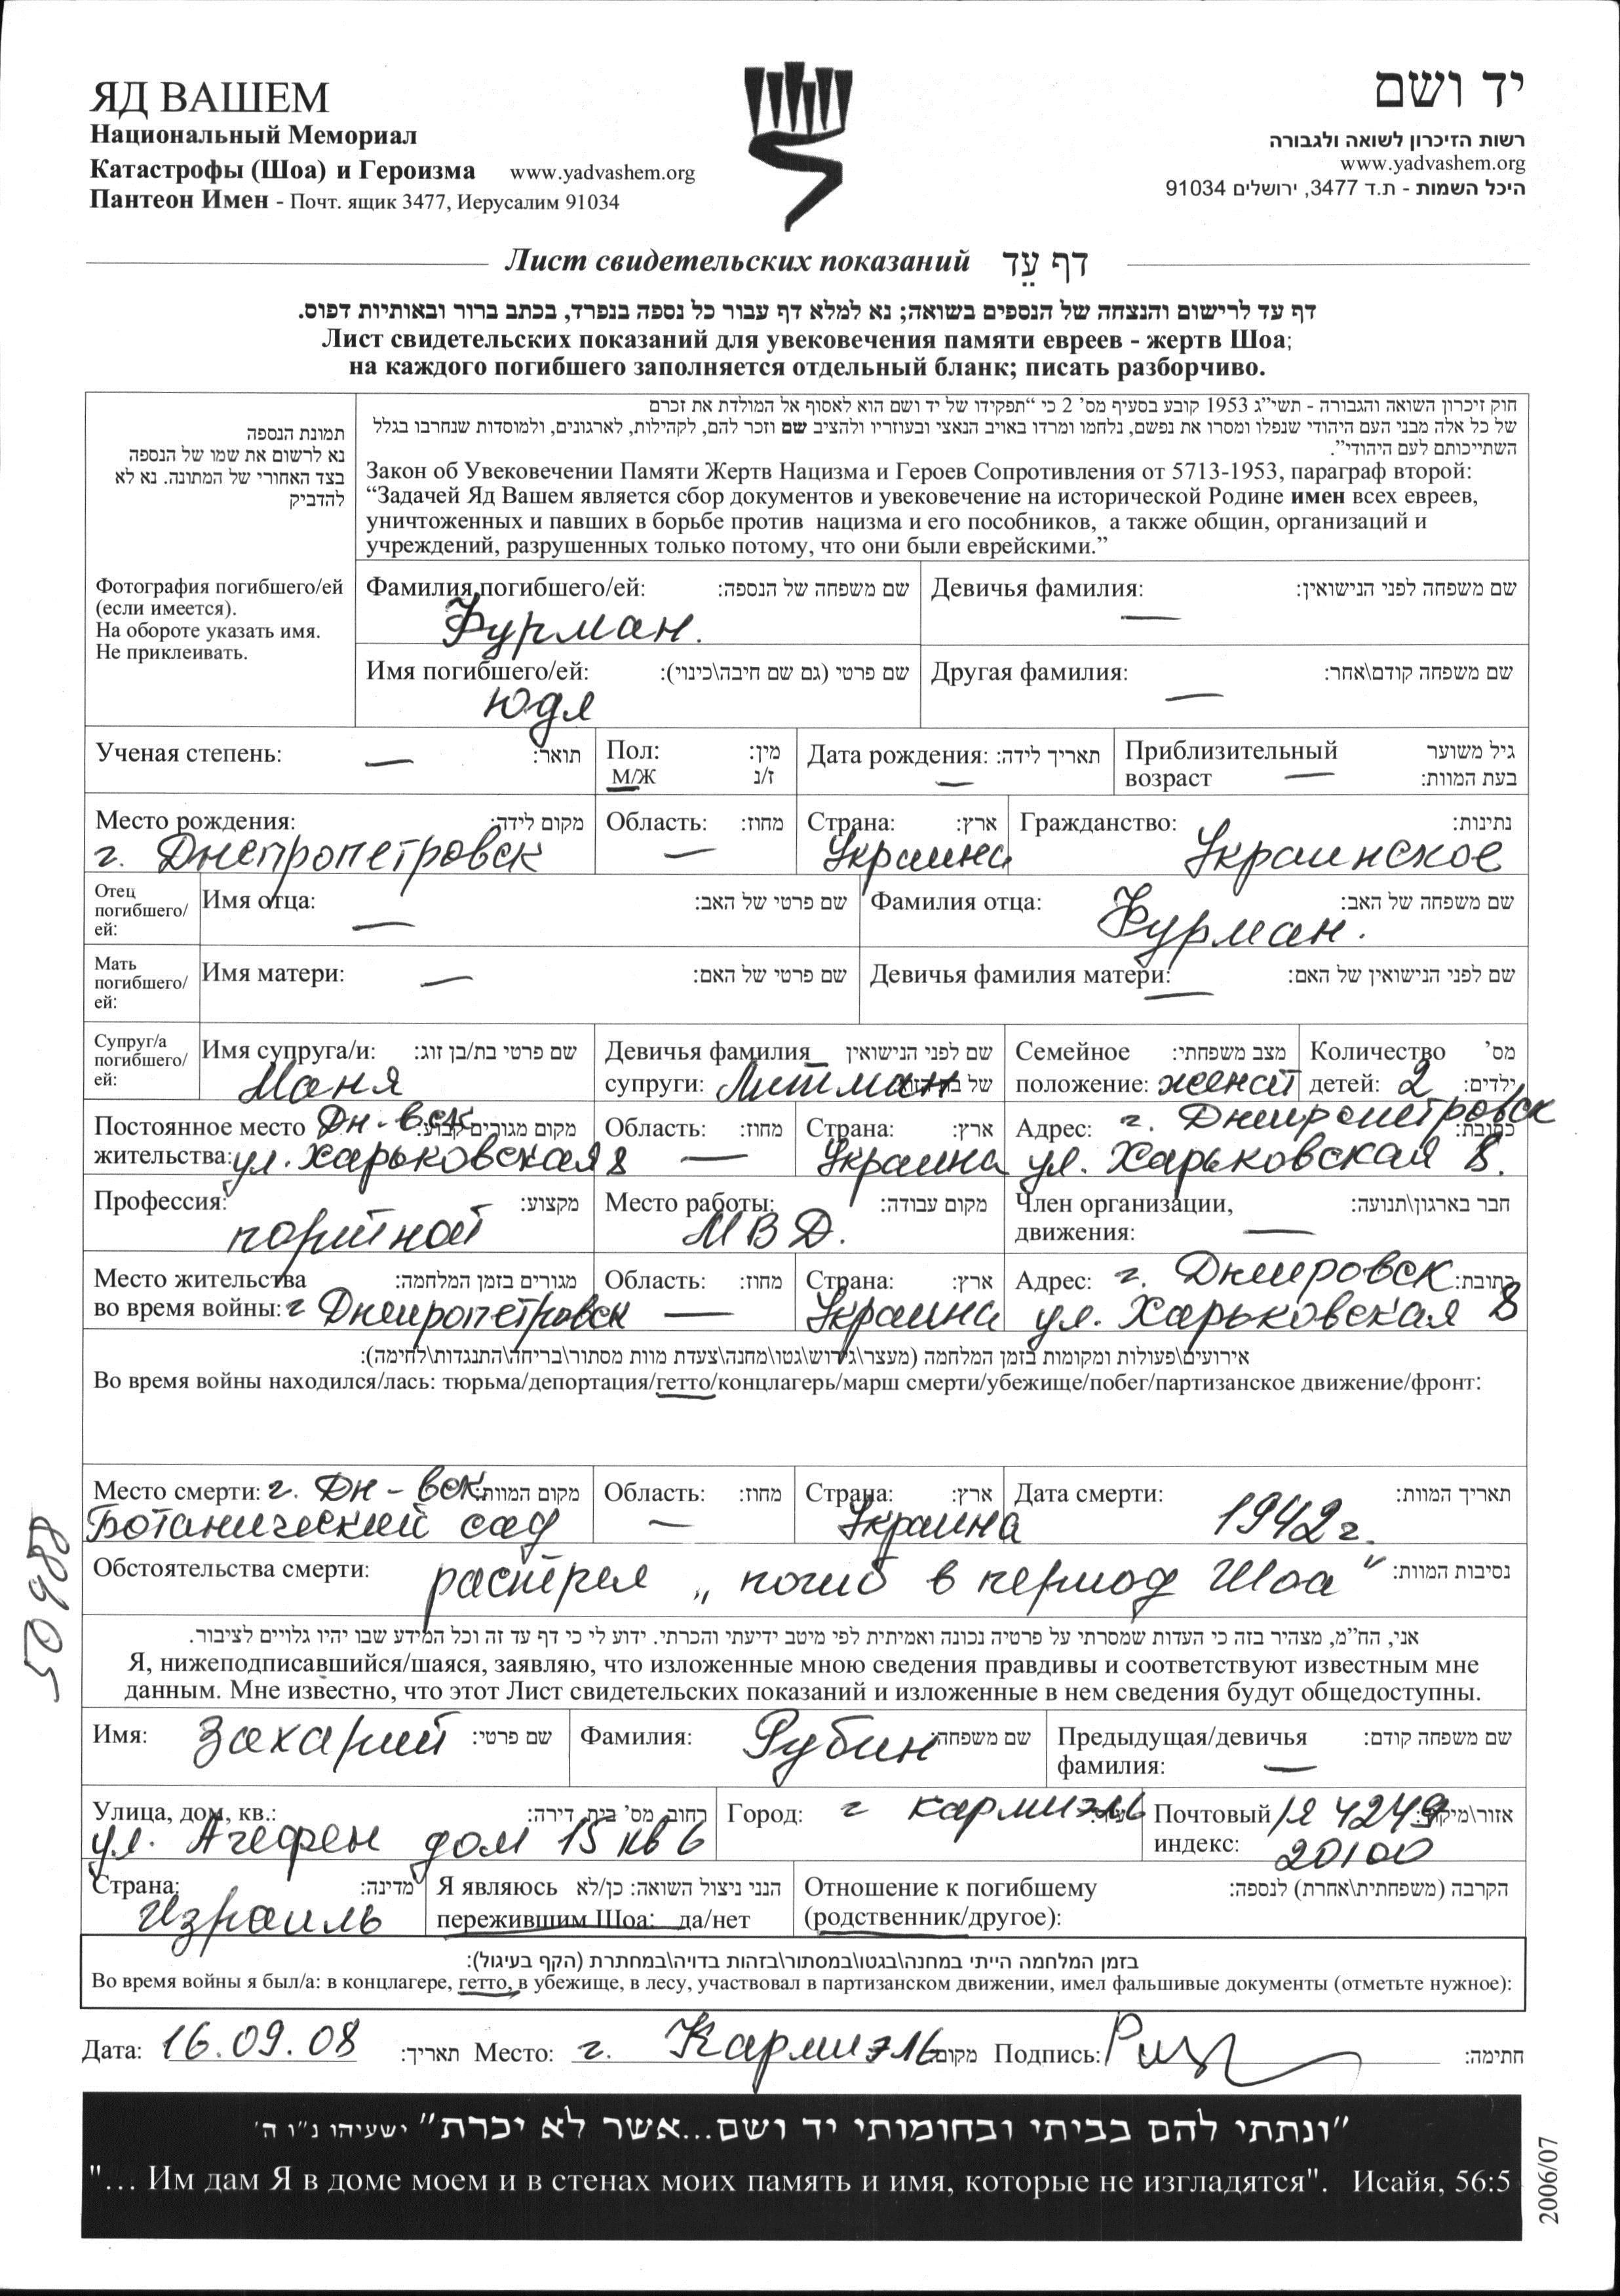 ЯД ВАШЕМ
Национальный Мемориал
Катастрофы (Шоа) и Героизма www.yadvashem.org
Пантеон Имен - Почт. ящик 3477, Иерусалим 91034
יד ושם
רשות הזיכרון לשואה ולגבורה
www.yadvashem.org
היכל השמות - ת.ד 3477, ירושלים 91034
Лист свидетельских показаний דף עֵד
דף עד לרישום והנצחה של הנספים בשואה; נא למלא דף עבור כל נספה בנפרד, בכתב ברור ובאותיות דפוס.
Лист свидетельских показаний для увековечения памяти евреев - жертв Шоа;
на каждого погибшего заполняется отдельный бланк; писать разборчиво.
תמונת הנספה
נא לרשום את שמו של הנספה
בצד האחורי של התמונה. נא לא
להדביק
Фотография погибшего/ей
(если имеется).
На обороте указать имя.
Не приклеивать.
חוק זיכרון השואה והגבורה - תשי"ג 1953 קובע בסעיף מס' 2 כי "תפקידו של יד ושם הוא לאסוף אל המולדת את זכרם
של כל אלה מבני העם היהודי שנפלו ומסרו את נפשם, נלחמו ומרדו באויב הנאצי ובעוזריו ולהציב שם וזכר להם, לקהילות, לארגונים, ולמוסדות שנחרבו בגלל
השתייכותם לעם היהודי".
Закон об Увековечении Памяти Жертв Нацизма и Героев Сопротивления от 5713-1953, параграф второй:
“Задачей Яд Вашем является сбор документов и увековечение на исторической Родине имен всех евреев,
уничтоженных и павших в борьбе против нацизма и его пособников, а также общин, организаций и
учреждений, разрушенных только потому, что они были еврейскими.”
Фамилия погибшего/ей: שם משפחה של הנספה: Девичья фамилия: שם משפחה לפני הנישואין:
Фурман. —
Имя погибшего/ей: שם פרטי (גם שם חיבה\כינוי): Другая фамилия: שם משפחה קודם\אחר:
Юдя —
Ученая степень: — תואר: Пол: מין: Дата рождения: תאריך לידה: Приблизительный גיל משוער
М/Ж ז/נ — возраст — בעת המוות:
Место рождения: מקום לידה: Область: מחוז: Страна: ארץ: Гражданство: נתינות:
г. Днепропетровск — Украина Украинское
Отец погибшего/ей: Имя отца: — שם פרטי של האב: Фамилия отца: Фурман. שם משפחה של האב:
Мать погибшего/ей: Имя матери: — שם פרטי של האם: Девичья фамилия матери: — שם לפני הנישואין של האם:
Супруг/а погибшего/ей: Имя супруга/и: שם פרטי בת/בן זוג: Девичья фамилия שם לפני הנישואין Семейное מצב משפחתי: Количество מס'
Маня супруги: Литман положение: женат детей: 2 ילדים:
Постоянное место Дн-вск מקום מגורים קבוע: Область: מחוז: Страна: ארץ: Адрес: г. Днепропетровск כתובת:
жительства: ул. Харьковская 8 — Украина ул. Харьковская 8.
Профессия: מקצוע: Место работы: מקום עבודה: Член организации, חבר בארגון\תנועה:
портной МВД. движения: —
Место жительства מגורים בזמן המלחמה: Область: מחוז: Страна: ארץ: Адрес: г. Днепровск כתובת:
во время войны: г Днепропетровск — Украина ул. Харьковская 8
אירועים\פעולות ומקומות בזמן המלחמה (מעצר\גירוש\גטו\מחנה\צעדת מוות מסתור\בריחה\התנגדות\לחימה):
Во время войны находился/лась: тюрьма/депортация/гетто/концлагерь/марш смерти/убежище/побег/партизанское движение/фронт:
Место смерти: г. Дн-вск מקום המוות: Область: מחוז: Страна: ארץ: Дата смерти: תאריך המוות:
Ботанический сад — Украина 1942 г.
Обстоятельства смерти: расстрел „погиб в период Шоа“ נסיבות המוות:
50988
אני, הח"מ, מצהיר בזה כי העדות שמסרתי על פרטיה נכונה ואמיתית לפי מיטב ידיעתי והכרתי. ידוע לי כי דף עד זה וכל המידע שבו יהיו גלויים לציבור.
Я, нижеподписавшийся/шаяся, заявляю, что изложенные мною сведения правдивы и соответствуют известным мне
данным. Мне известно, что этот Лист свидетельских показаний и изложенные в нем сведения будут общедоступны.
Имя: Захарий שם פרטי: Фамилия: Рубин שם משפחה: Предыдущая/девичья שם משפחה קודם:
фамилия: —
Улица, дом, кв.: רחוב, מס' בית, דירה: Город: г Кармиэль Почтовый п/я 4249 אזור\מיקוד:
ул. Агефен дом 15 кв 6 индекс: 20100
Страна: מדינה: Я являюсь הנני ניצול השואה: כן/לא Отношение к погибшему הקרבה (משפחתית\אחרת) לנספה:
Израиль пережившим Шоа: да/нет (родственник/другое):
בזמן המלחמה הייתי במחנה\בגטו\במסתור\בזהות בדויה\במחתרת (הקף בעיגול):
Во время войны я был/а: в концлагере, гетто, в убежище, в лесу, участвовал в партизанском движении, имел фальшивые документы (отметьте нужное):
Дата: 16.09.08 תאריך: Место: г. Кармиэль מקום: Подпись: חתימה:
"ונתתי להם בביתי ובחומותי יד ושם...אשר לא יכרת" ישעיהו נ"ו ה'
"... Им дам Я в доме моем и в стенах моих память и имя, которые не изгладятся". Исайя, 56:5
2006/07